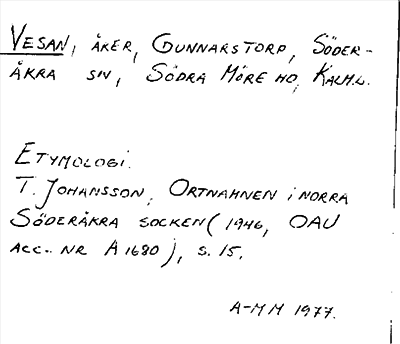 VESAN, ÅKER, GUNNARSTORP, SÖDER-
ÅKRA SN, SÖDRA MÖRE HD, KALM.L.
ETYMOLOGI.
T. JOHANSSON, ORTNAMNEN I NORRA
SÖDERÅKRA SOCKEN (1946, OAU
ACC.- NR A 1680), S. 15.
A-MM 1977.